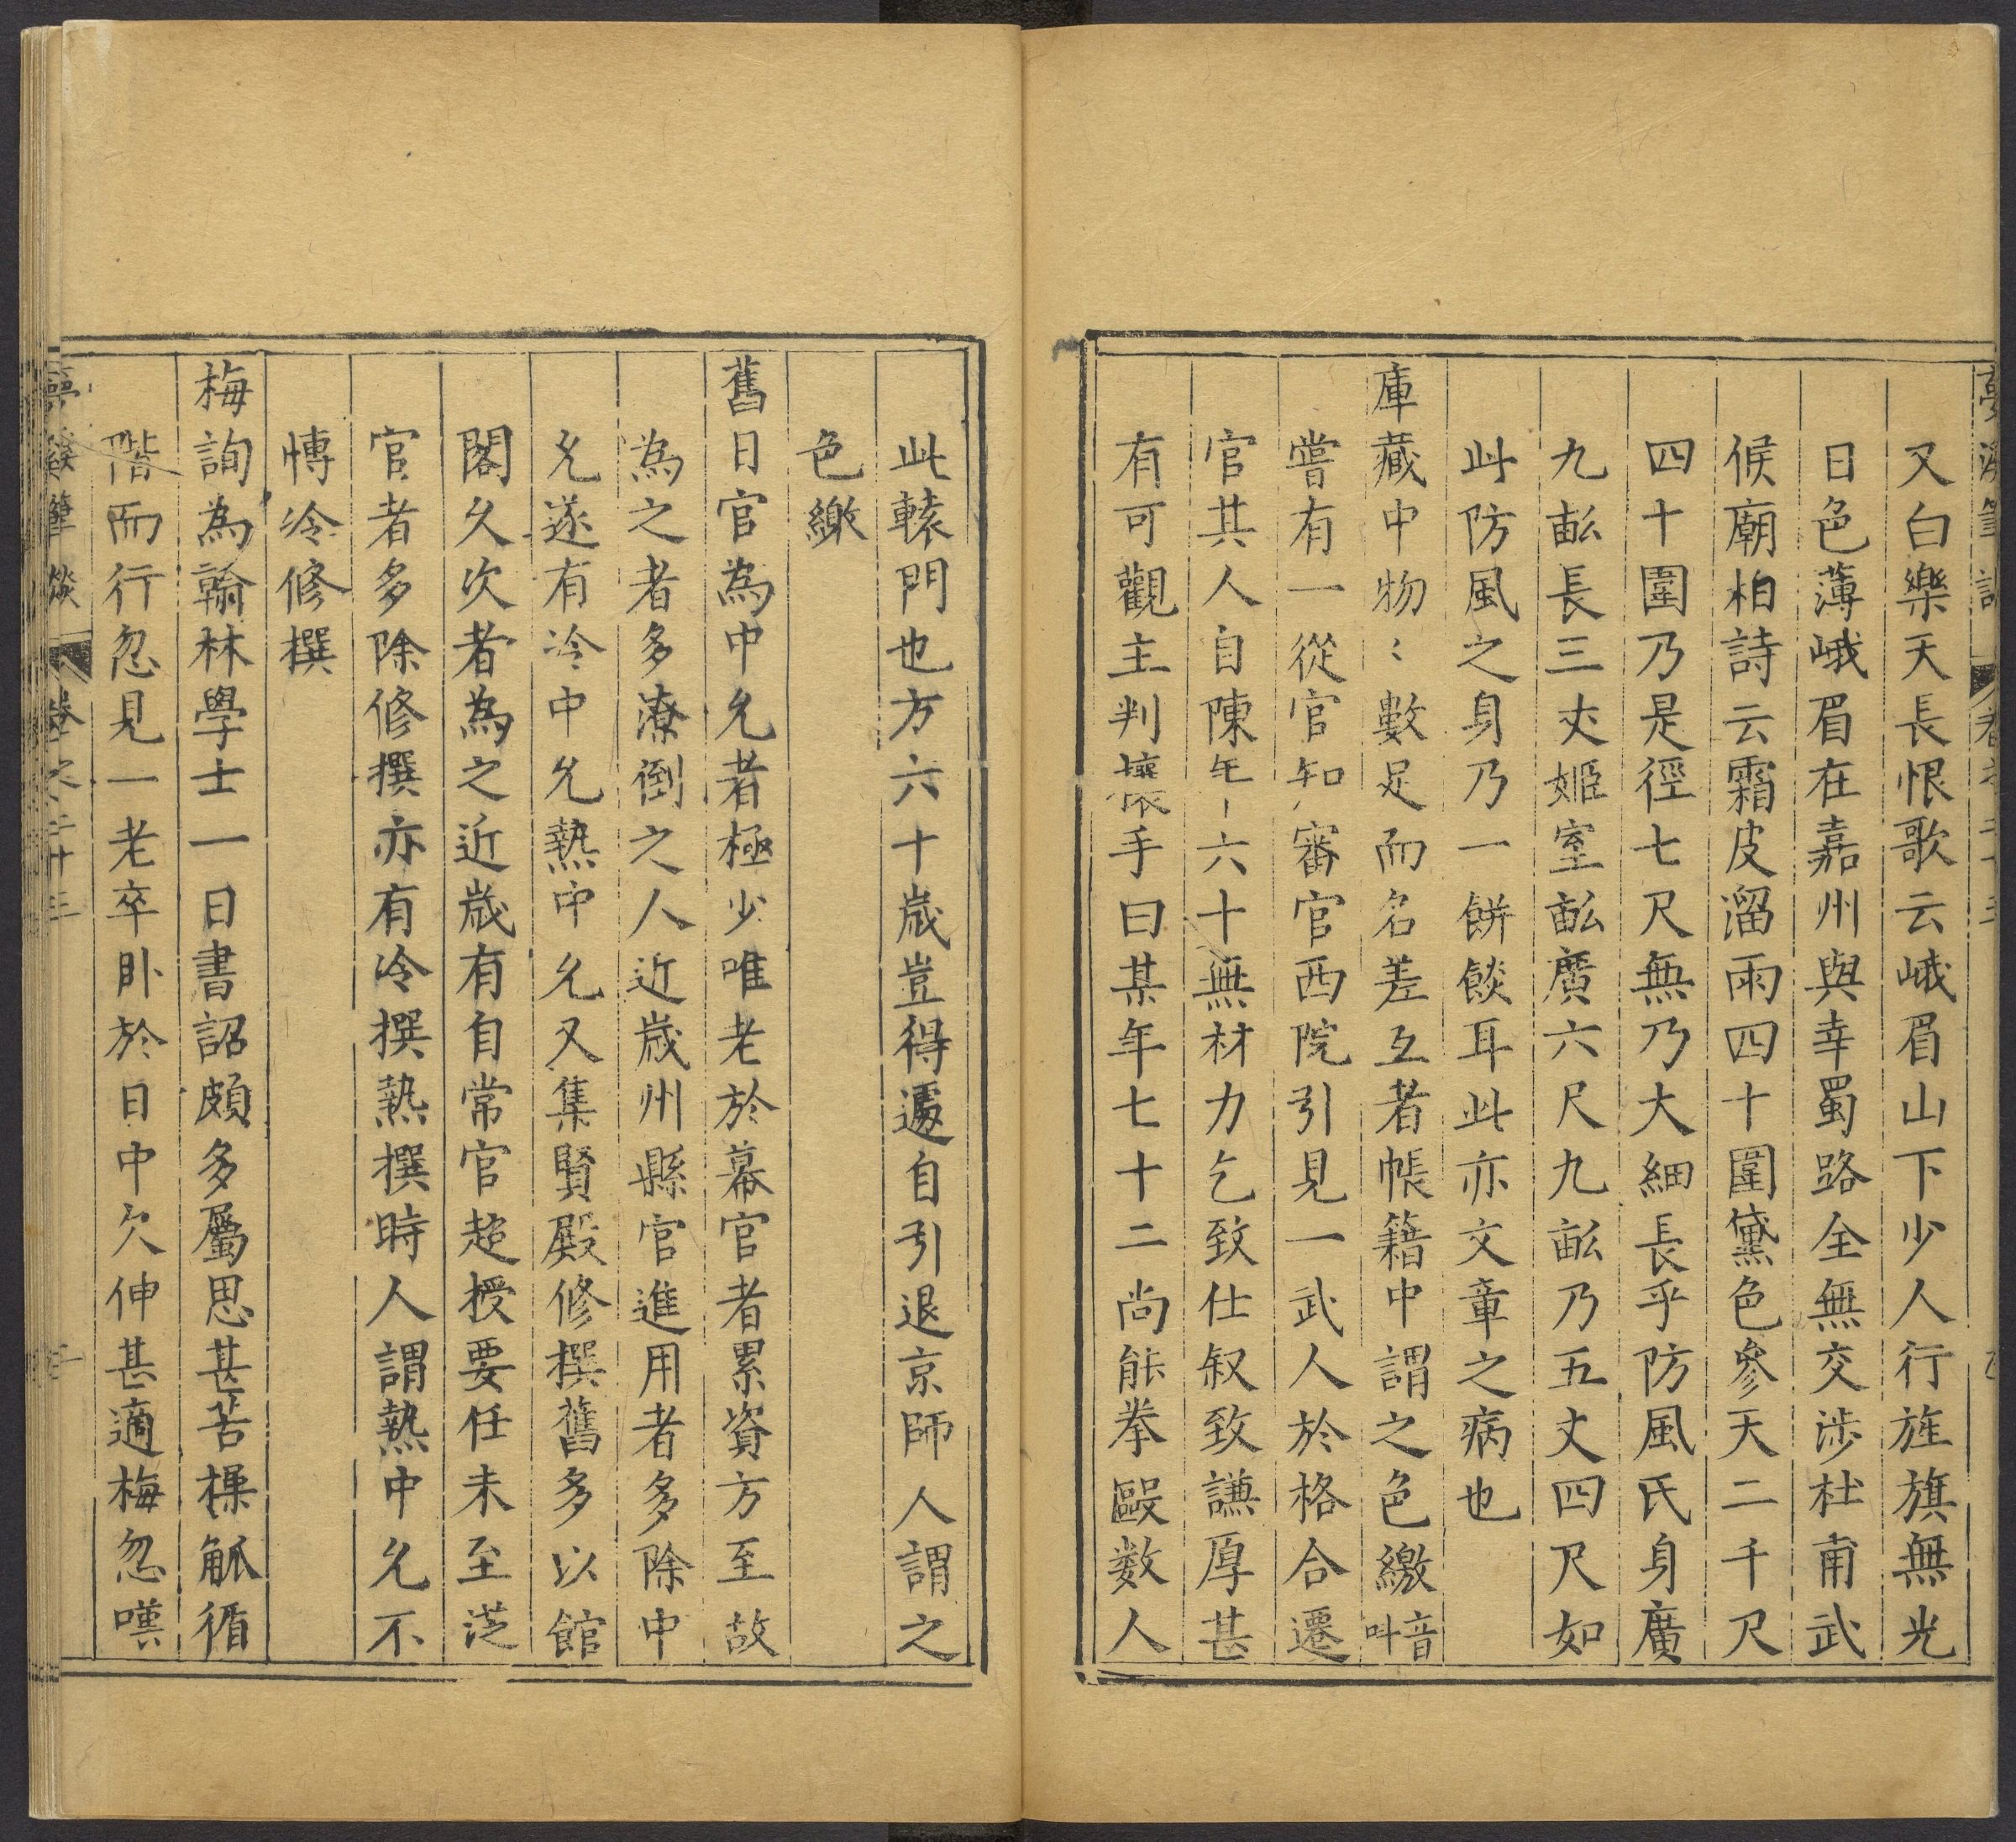 又白樂天長恨歌云峨眉山下少人行旌旗無光
日色薄峨眉在嘉州與幸蜀路全無交涉杜甫武
候廟柏詩云霜皮溜雨四十圍黛色參天二千尺
四十圍乃是徑七尺無乃大細長乎防風氏身廣
九畝長三丈姬室畝廣六尺九畝乃五丈四尺如
此防風之身乃一餅餤耳此亦文章之病也
庫藏中物〻數足而名差互者帳籍中謂之色繳音叫
嘗有一從官知審官西院引見一武人於格合遷
官其人自陳年六十無材力乞致仕叙致謙厚甚
有可觀主判攘手曰某年七十二尚能拳毆數人
此轅門也方六十歲豈得遽自引退京師人謂之
色繳
舊日官為中允者極少唯老於幕官者累資方至故
為之者多潦倒之人近歲州縣官進用者多除中
允遂有冷中允熱中允又集賢殿修撰舊多以館
閣久次者為之近歲有自常官超授要任未至從
官者多除修撰亦有冷撰熱撰時人謂熱中允不
慱冷修撰
梅詢為翰林學士一日書詔頗多屬思甚苦操觚循
階而行忽見一老卒臥於日中欠伸甚適梅忽嘆
夢溪筆談 卷之二十三